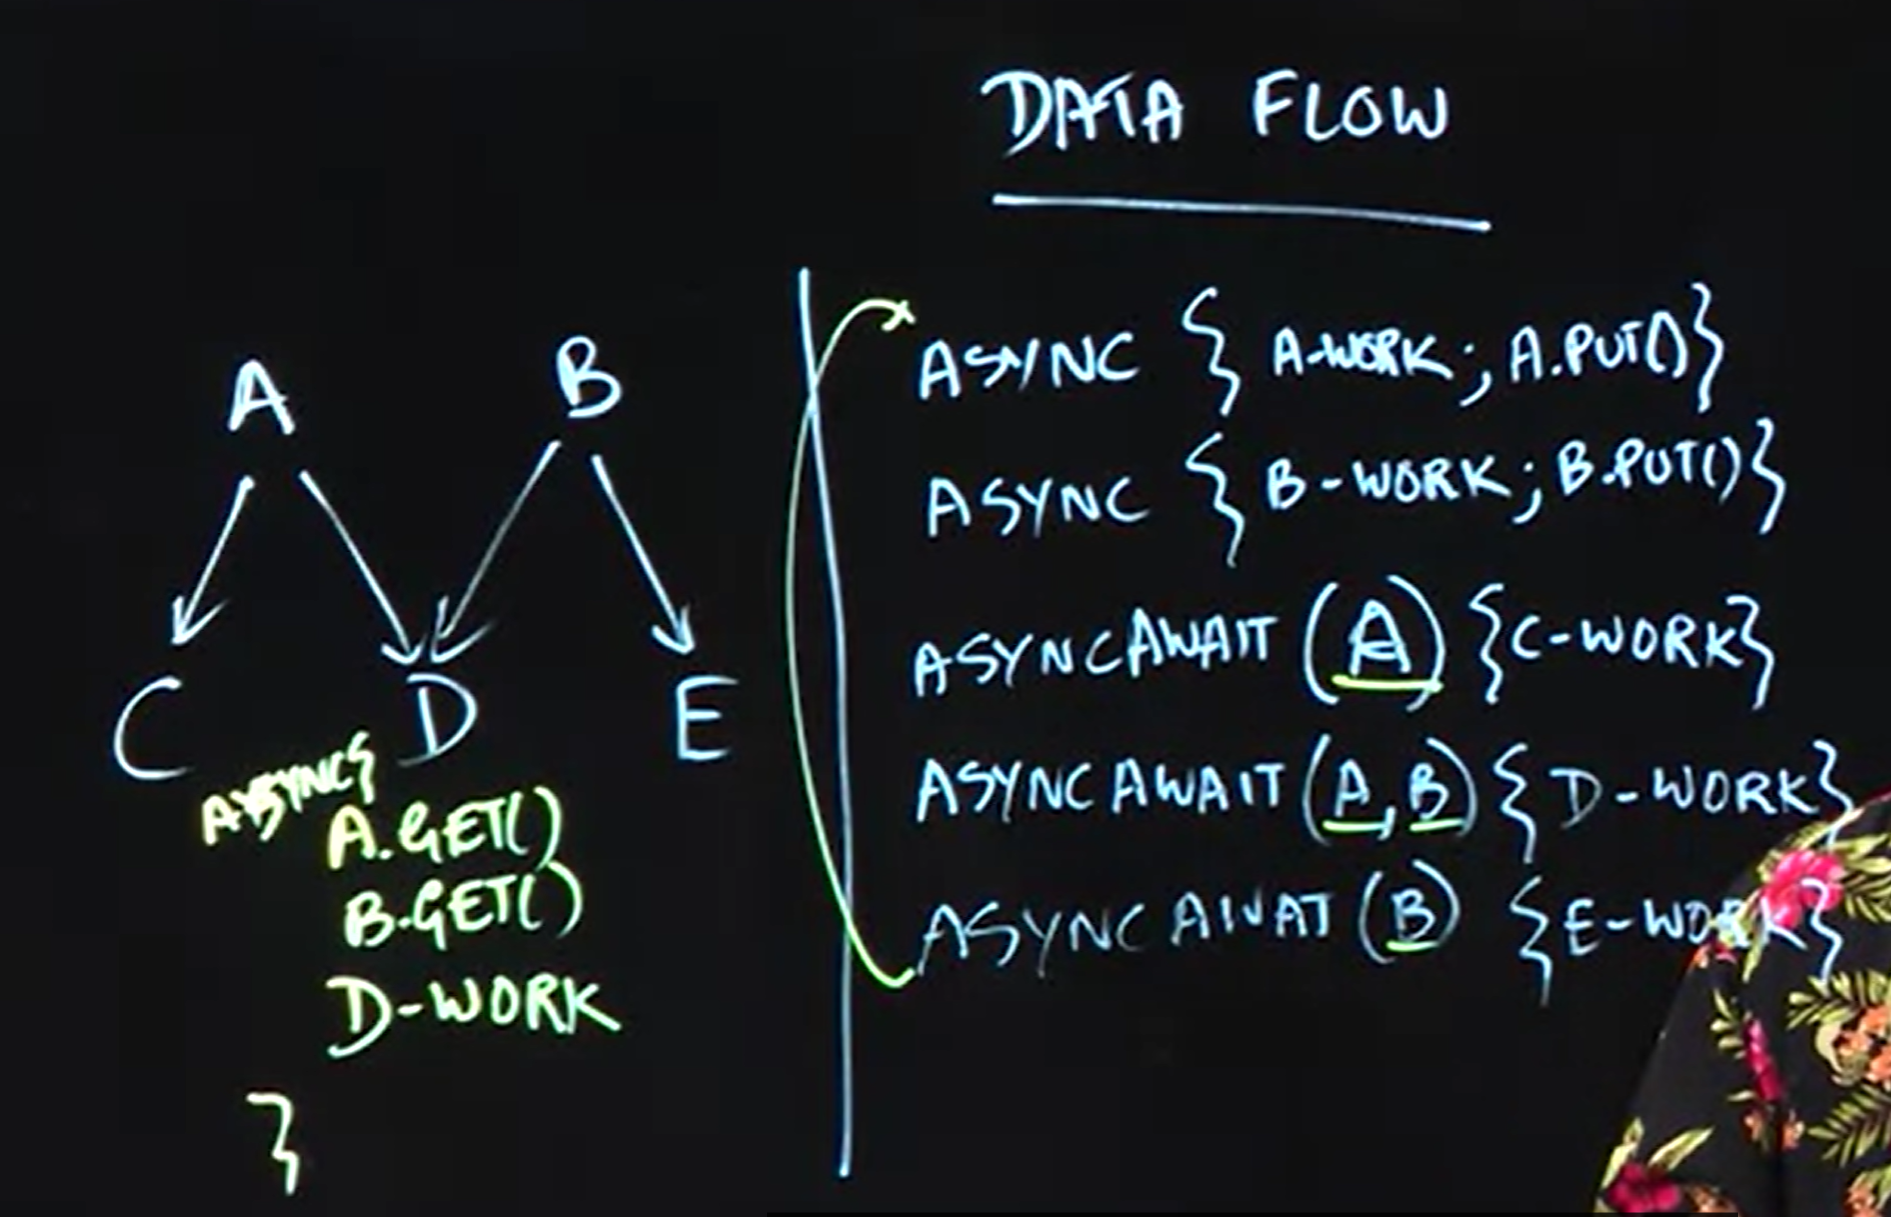 DATA FLOW
A B
C D E
ASYNC {
A.GET()
B.GET()
D-WORK
}
ASYNC { A-WORK; A.PUT()}
ASYNC { B-WORK; B.PUT()}
ASYNCAWAIT (A) {C-WORK}
ASYNCAWAIT (A,B) { D-WORK}
ASYNCAWAT (B) {E-WORK}